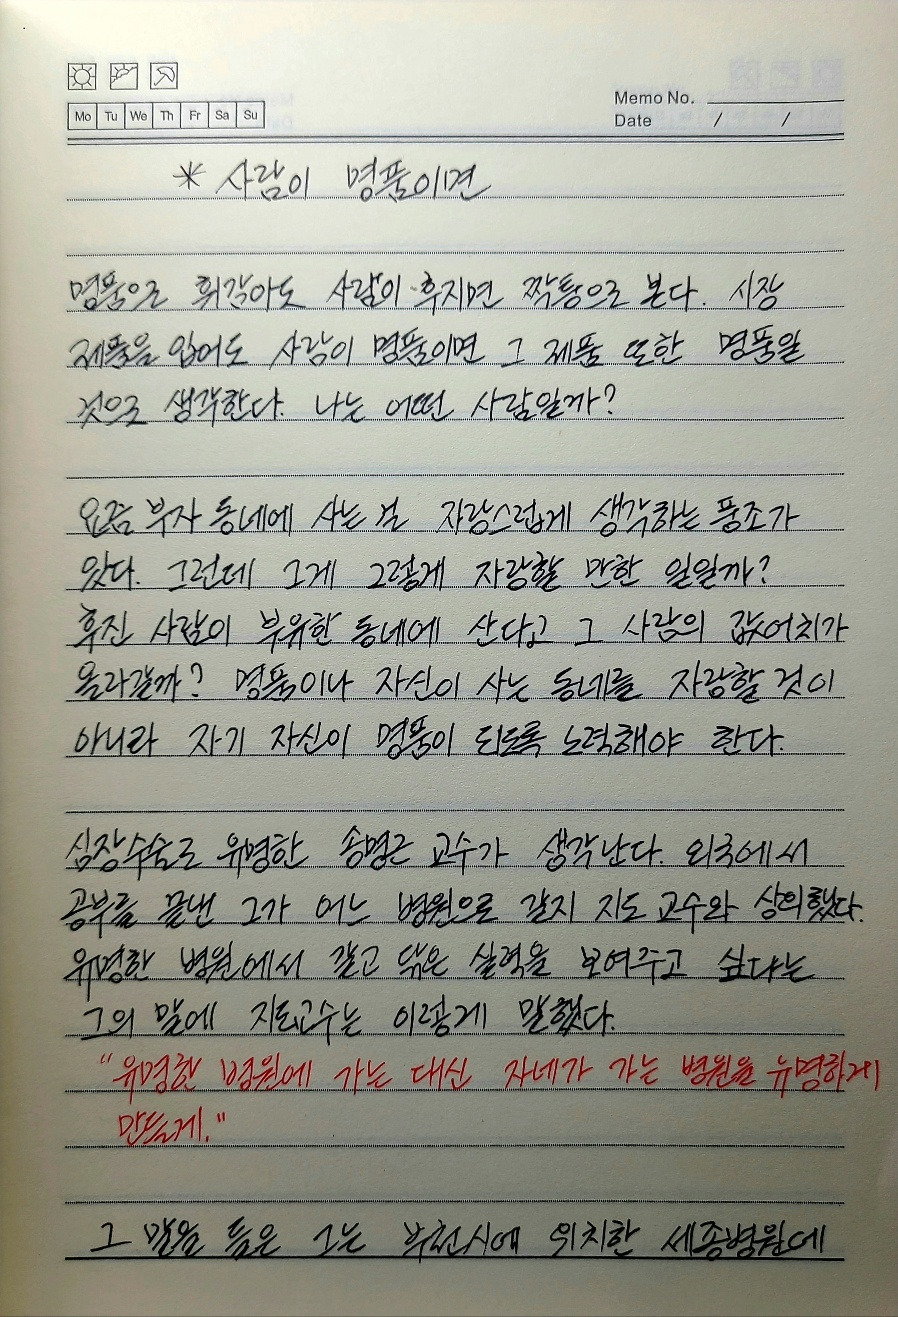 Memo No.
Mo Tu We Th Fr Sa Su
Date / /
* 사람이 명품이면
명품으로 휘감아도 사람이 후지면 짝퉁으로 본다. 시장
제품을 입어도 사람이 명품이면 그 제품 또한 명품일
것으로 생각한다. 나는 어떤 사람일까?
요즘 부자 동네에 사는 걸 자랑스럽게 생각하는 풍조가
있다. 그런데 그게 그렇게 자랑할 만한 일일까?
후진 사람이 부유한 동네에 산다고 그 사람의 값어치가
올라갈까? 명품이나 자신이 사는 동네를 자랑할 것이
아니라 자기 자신이 명품이 되도록 노력해야 한다.
심장수술로 유명한 송명근 교수가 생각난다. 외국에서
공부를 끝낸 그가 어느 병원으로 갈지 지도 교수와 상의했다.
유명한 병원에서 갈고 닦은 실력을 보여주고 싶다는
그의 말에 지도교수는 이렇게 말했다.
"유명한 병원에 가는 대신 자네가 가는 병원을 유명하게
만들게."
그 말을 들은 그는 부천시에 위치한 세종병원에